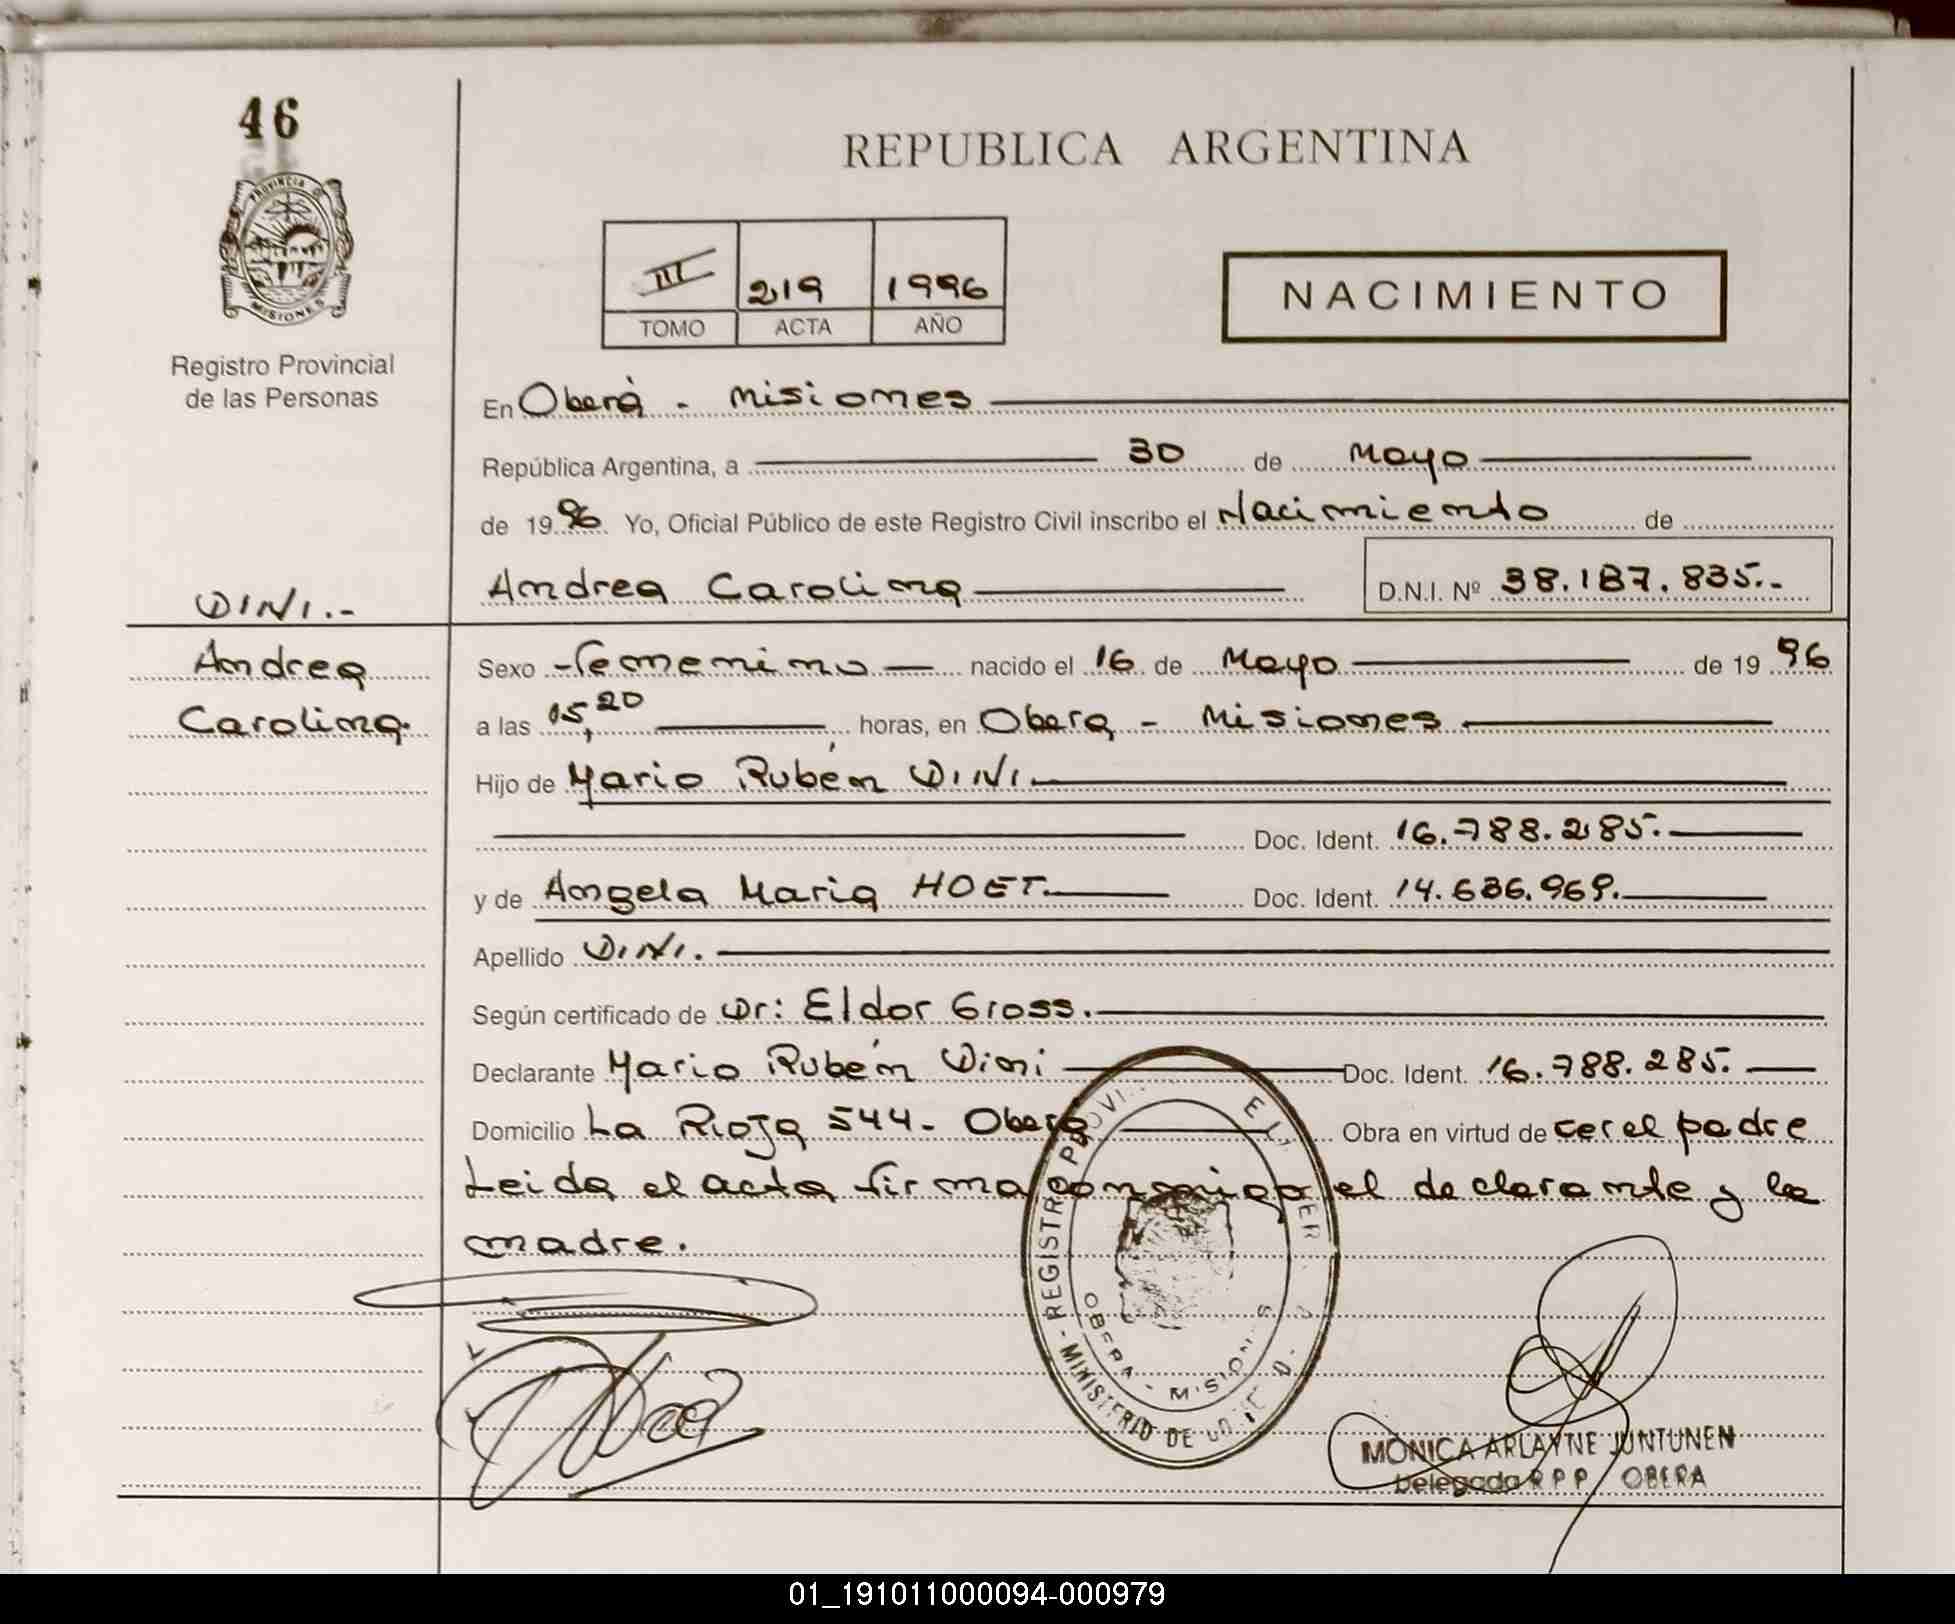 46
PROVINCIA D
MISIONES
Registro Provincial
de las Personas
REPUBLICA ARGENTINA
III 219 1996
TOMO ACTA AÑO
NACIMIENTO
En Oberá - Misiones
República Argentina, a 30 de Mayo
de 1996. Yo, Oficial Público de este Registro Civil inscribo el Nacimiento de
Andrea Carolina D.N.I. Nº 38.187.835.-
DINI.-
Andrea
Carolina.
Sexo Femenino nacido el 16 de Mayo de 1996
a las 15,20 horas, en Obera - Misiones
Hijo de Mario Rubén DINI.
Doc. Ident. 16.788.285.
y de Angela Maria HOET. Doc. Ident. 14.636.969.
Apellido DINI.
Según certificado de Dr: Eldor Gross.
Declarante Mario Rubén Dini Doc. Ident. 16.788.285.
Domicilio La Rioja 544- Obera Obra en virtud de cer el padre
Leida el acta firma conmigo el declarante y la
madre.
REGISTRO PROVI
MINISTERIO DE
OBERA - MISION S
MONICA ARLAYNE JUNTUNEN
Delegada R P P OBERA
01_191011000094-000979